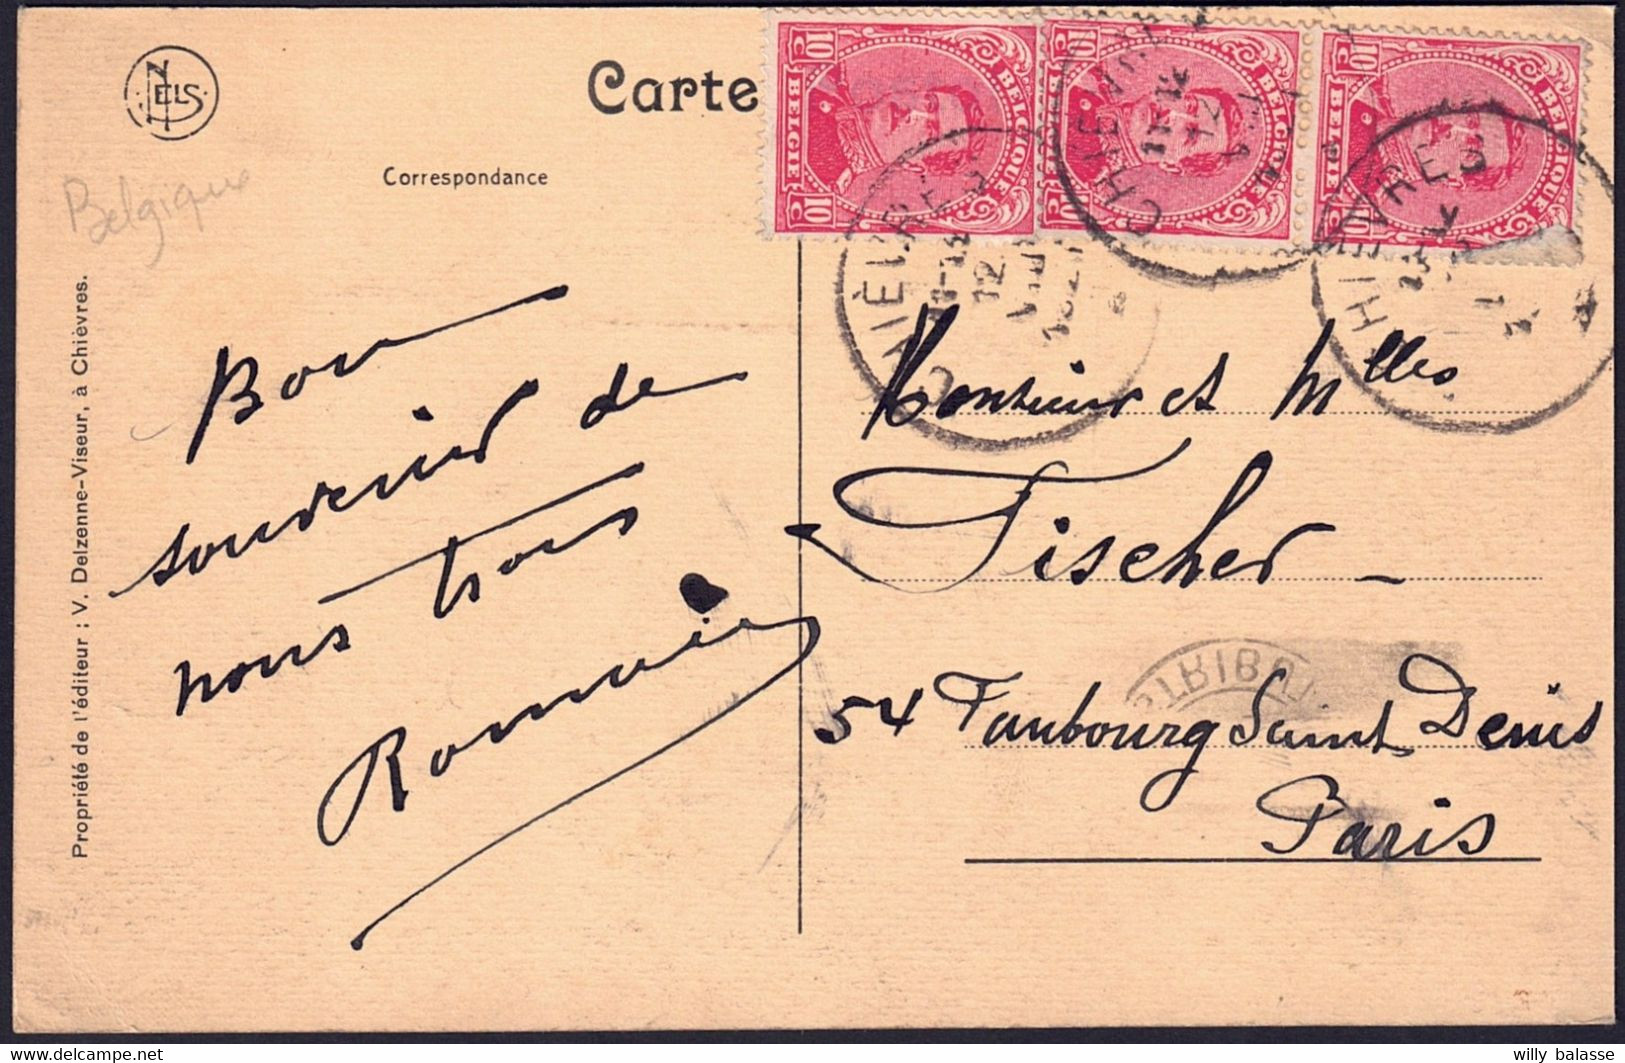 NELS
Carte
Correspondance
Belgique
Propriété de l'éditeur : V. Delzenne-Viseur, à Chièvres.
10c BELGIQUE BELGIË 10c
10c BELGIQUE BELGIË 10c
10c BELGIQUE BELGIË 10c
CHIÈVRES
CHIEVRES
CHIEVRES
Bon
souvenir de
nous tous
Romain
Monsieur et Mlles
Fischer
54 Faubourg Saint Denis
Paris
willy balasse